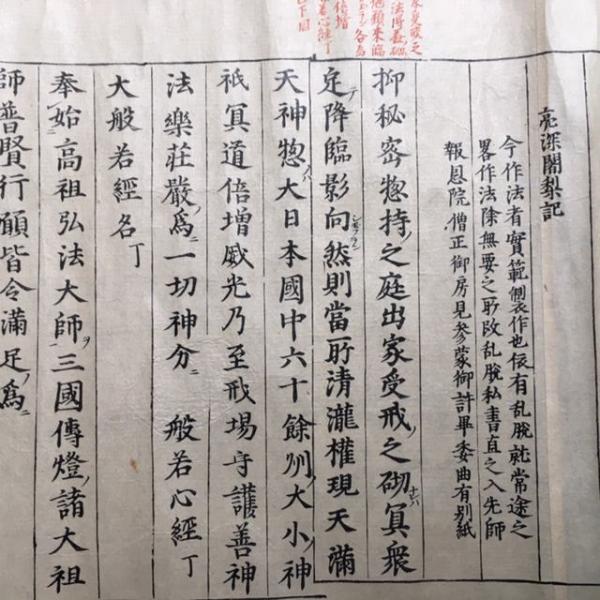 家受戒之
各為
倍増
心經丁
亮深闍梨記
今作法者實範製作也仮有乱脱就常途之
畧作法除無要之所改乱脱私書直之入先師
報恩院僧正御房見参蒙御許畢委曲有別紙
抑秘密惣持ノ之庭出家受戒ノ之砌ナレハ冥衆
定テ降臨影向然則當所清瀧權現天滿
天神惣ハ大日本國中六十餘州ノ大小ノ神
祇冥道倍增威光乃至戒場守護善神
法樂莊嚴ノ爲ニ一切神分ニ 般若心經丁
大般若經名丁
奉始高祖弘法大師ヲ三國傳燈ノ諸大祖
師普賢行願皆令滿足ノ爲ニ